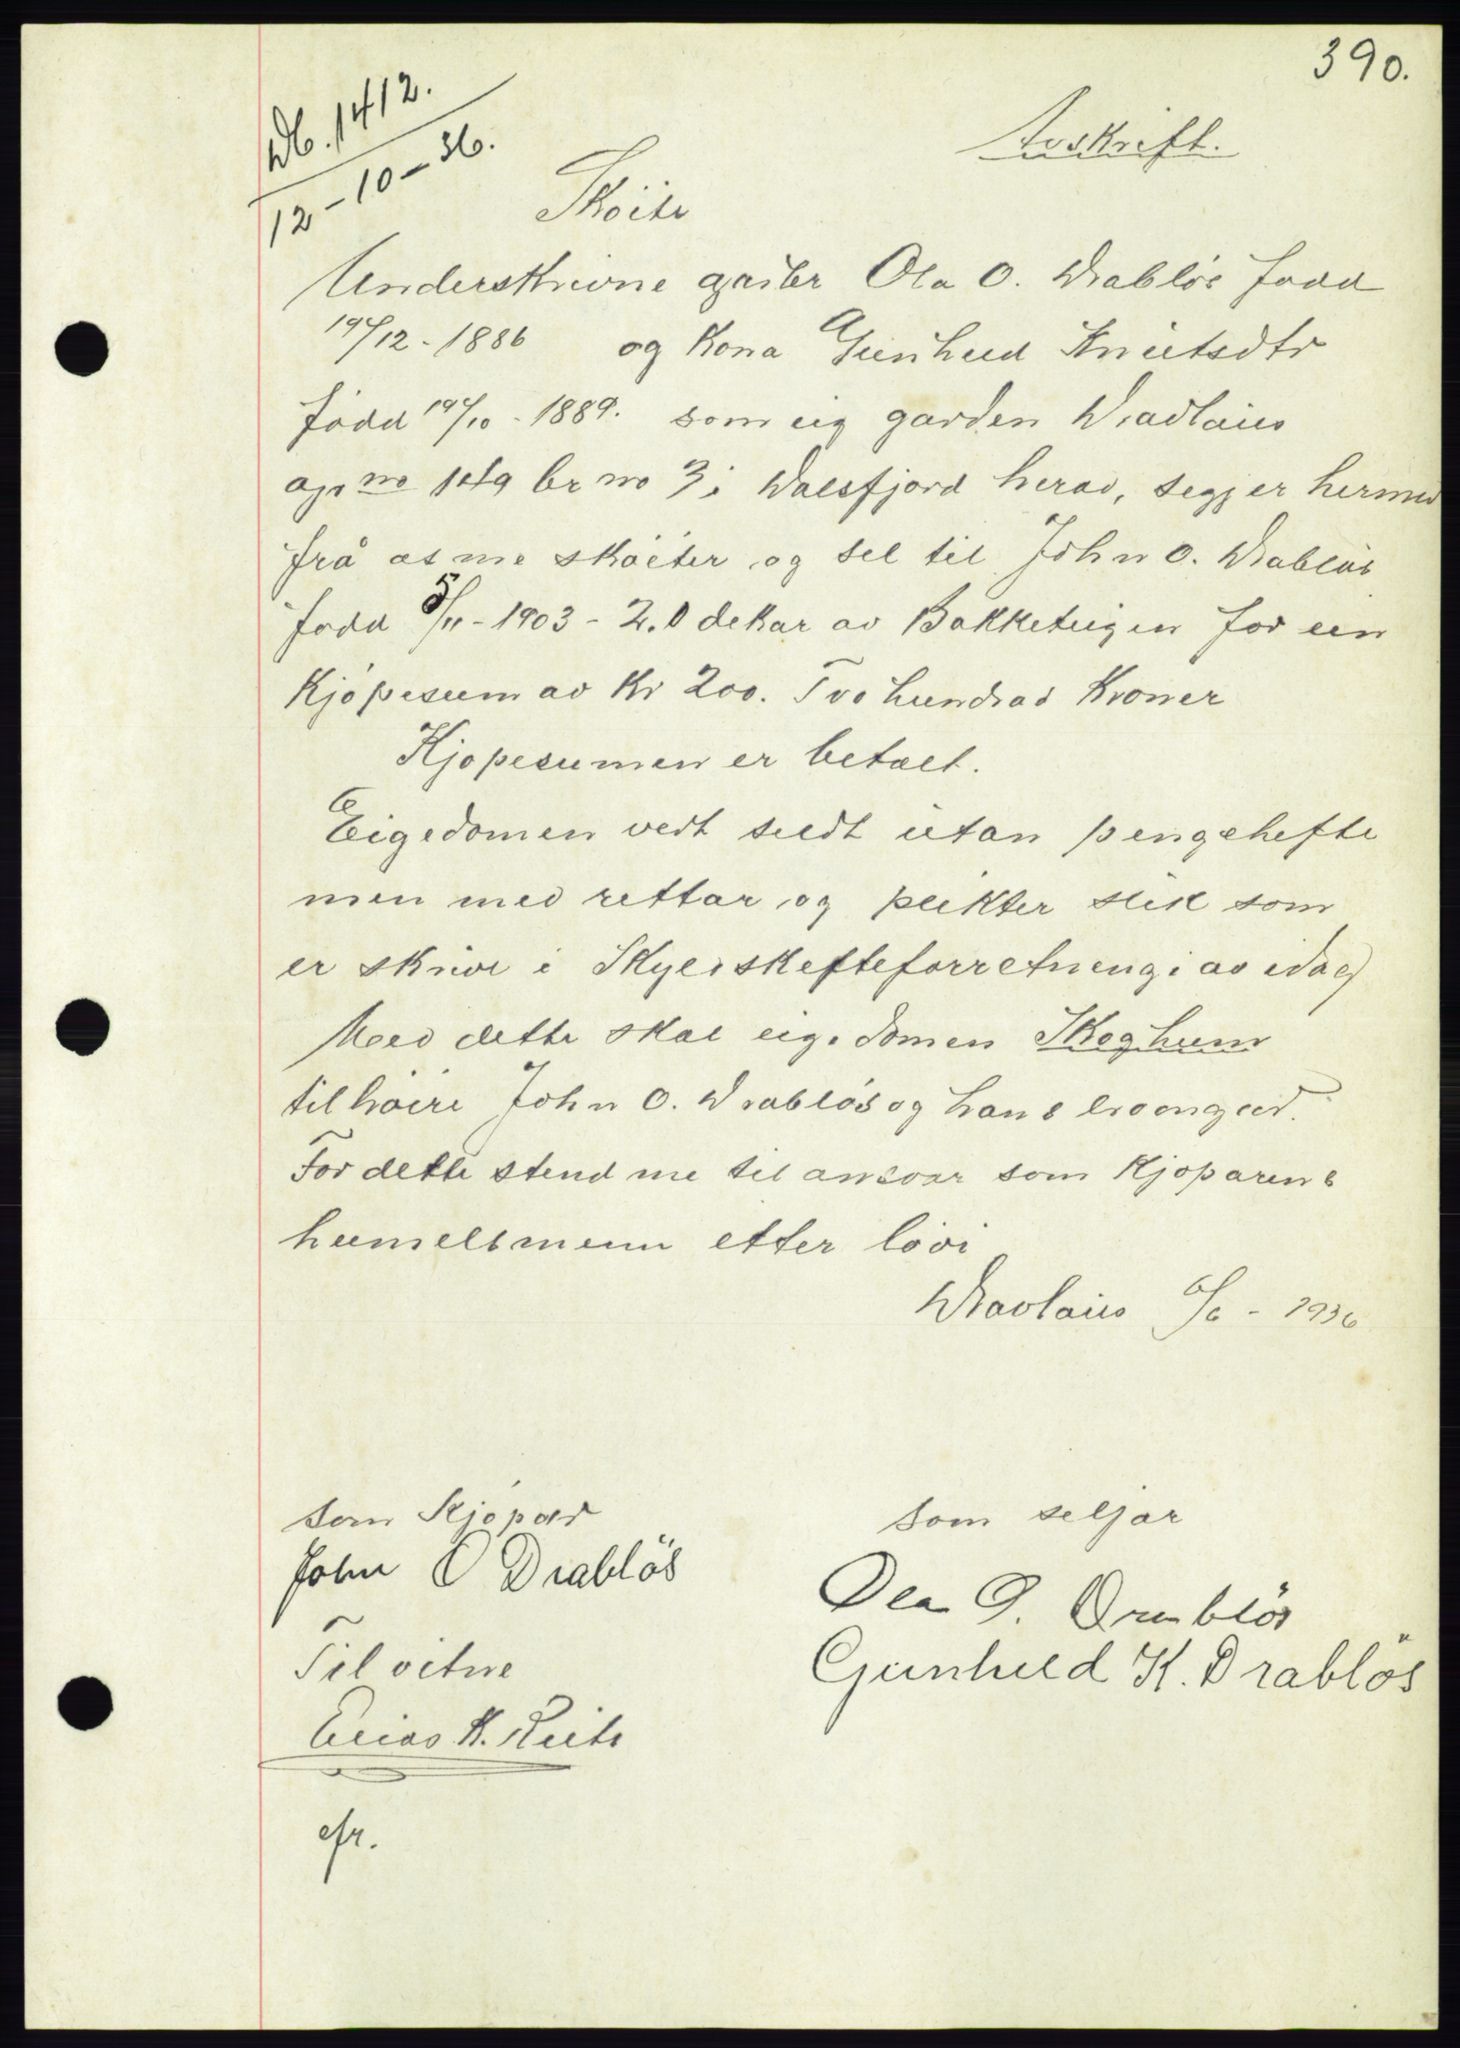 390.
Db. 1412.
12-10-36.
Avskrift.
Skøite
Underskrivne Ola O. Drabløs født
/12-1886 og kona Gunhild Knutsdtr
født /10-1889. som eig garden Dravlaus
gr no br no 3 i Dalsfjord herad, segjer hermed
frå at me skøiter og sel til John O. Drabløs
født 5/11-1903-2.0 dekar av Bakketeigen for ein
kjøpesum av kr 200. Tvo hundrad kroner
Kjøpesumen er betalt.
Eigedomen vert seldt utan pengehefte
men med rettar og plikter slik som
er skrive i Skyldskifteforretningi av idag
Med dette skal eigedomen Skoghum
tilhøire John O. Drabløs og hans
For dette stend me til ansvar som kjøparens
heimelsmenn etter lovi
Dravlaus 6/6-1936
som kjøpar
som seljar
John O Drabløs
Ola O. Drabløs
Gunhild K. Drabløs
Til vitne
Elias K. Leite